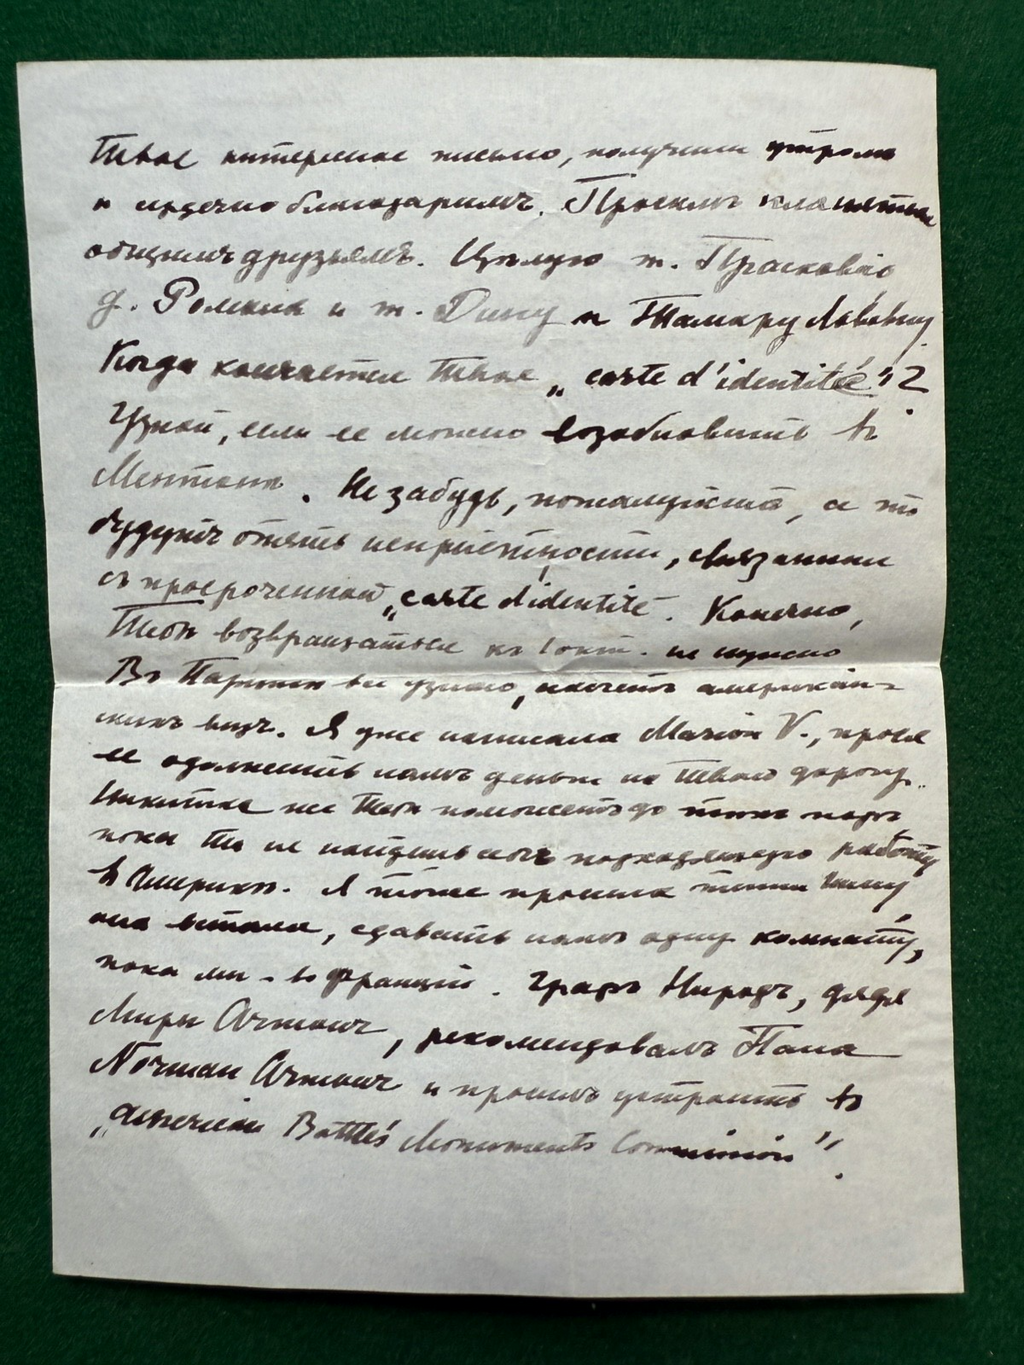 Твое интересное письмо, получили утромъ
и сердечно благодаримъ. Просимъ кланяться
общимъ друзьямъ. Цѣлую т. Прасковію
д. Романа и т. Дину и Тамару Львовну.
Когда кончается Твое „carte d'identité"?
Узнай, если ее можно возобновить въ
Ментонѣ. Не забудь, пожалуйста, а то
будутъ опять непріятности, связанныя
съ просроченной „carte d'identité. Конечно,
Тебѣ возвращаться къ 1 окт. не нужно
Въ Парижѣ все узнаю, насчетъ американ-
скихъ визъ. Я уже написала Marion V., прося
ее одолжить намъ деньги на Твою дорогу.
Никитина же Тебѣ поможетъ до тѣхъ поръ
пока Ты не найдешь себѣ подходящую работу
въ Америкѣ. Я тоже просила тетю
она встала, сдавать намъ одну комнату,
пока мы - во Франціи. Графъ Ниродъ, дядя
Миры Ачтовичъ, рекомендовалъ Папа
Norman Ачтовичъ и просилъ устроить въ
„American Battle's Monuments Commission".